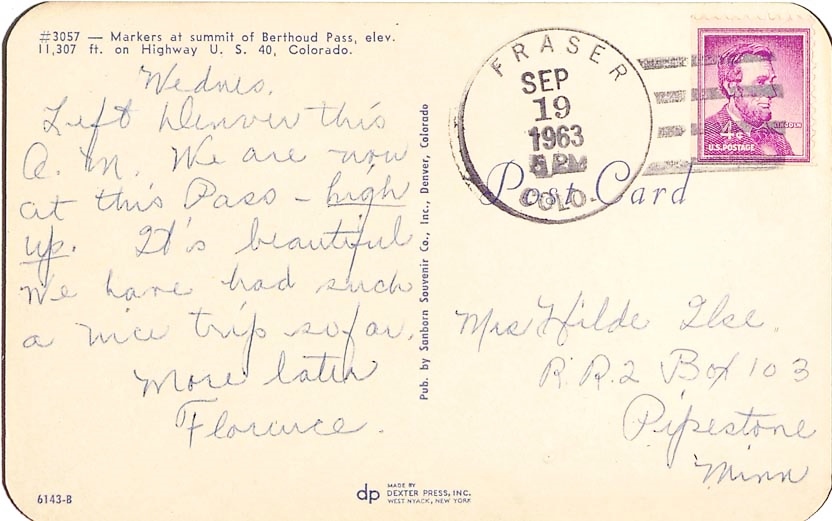 #3057 — Markers at summit of Berthoud Pass, elev.
11,307 ft. on Highway U. S. 40, Colorado.
Wednes.
Left Denver this
A. M. We are now
at this Pass - high
up. It's beautiful
We have had such
a nice trip so far.
More later
Florence.
6143-B
Pub. by Sanborn Souvenir Co., Inc., Denver, Colorado
dp
MADE BY
DEXTER PRESS, INC.
WEST NYACK, NEW YORK
FRASER
SEP
19
1963
PM
COLO.
LINCOLN
4¢
U.S. POSTAGE
Post Card
Mrs Hilde Ilse
R.R.2 Box 103
Pipestone
Minn